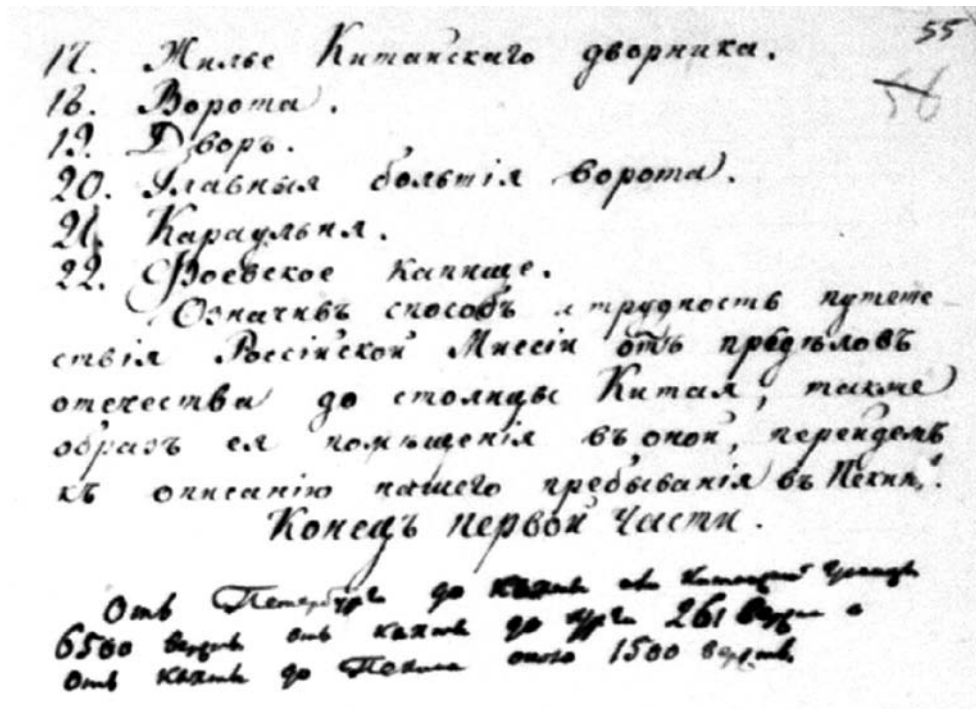 55
56
17. Жилье Китайскаго дворника.
18. Ворота.
19. Дворъ.
20. Главныя большія ворота.
21. Караульня.
22. Фоевское капище.
Означивъ способъ и трудность путеше
ствія Россійской Миссіи отъ предѣловъ
отечества до столицы Китая, также
образъ ея помѣщенія въ оной, перейдемъ
къ описанію нашего пребыванія въ Пекинѣ.
Конецъ первой части.
Отъ Петербурга до Кяхты
6500 верстъ отъ Кяхты до Урги 261 верста и
отъ Кяхты до Пекина около 1500 верстъ.